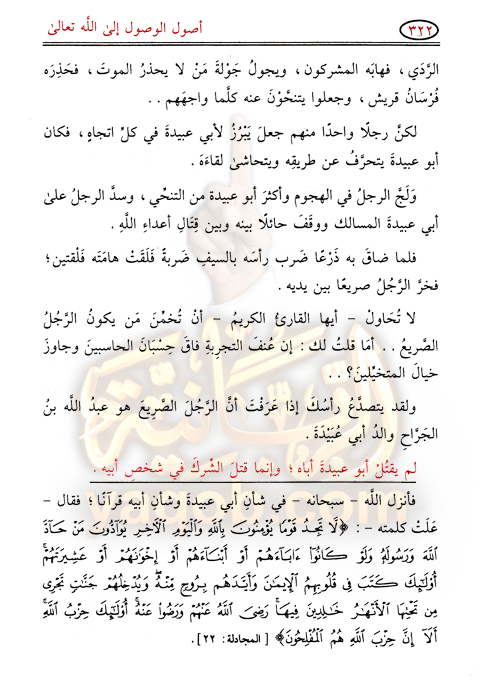 أصول الوصول إلى اللَّه تعالىٰ
٣٢٢
الرَّدَي ، فهابَه المشركون ، ويجولُ جَوْلةَ مَنْ لا يحذرُ الموتَ ، فحَذِرَه
فُرْسَانُ قريش ، وجعلوا يتنحَّوْنَ عنه كلَّما واجهَهم . .
لكنَّ رجلًا واحدًا منهم جعلَ يَبْرُزُ لأبي عبيدةَ في كلِّ اتجاهٍ ، فكان
أبو عبيدةَ يتحرَّفُ عن طريقِه ويتحاشىٰ لقاءَهَ .
وَلَجَّ الرجلُ في الهجوم وأكثرَ أبو عبيدة من التنحِّي ، وسدَّ الرجلُ علىٰ
أبي عبيدةَ المسالك ووقَفَ حائلًا بينه وبين قِتَالِ أعداءِ اللَّهِ .
فلما ضاقَ به ذَرْعًا ضَرب رأسَه بالسيفِ ضَربةً فَلَقَتْ هامَتَه فَلْقتين ؛
فخرَّ الرَّجُلُ صريعًا بين يديه .
لا تُحَاولْ – أيها القارئُ الكريمُ – أنْ تُخمِّنَ مَن يكونُ الرَّجُلُ
الصَّريعُ . . أمَا قلتُ لك : إن عُنفَ التجرِبةِ فاقَ حِسْبَانَ الحاسبينَ وجاوزَ
خيالَ المتخيِّلينَ؟ . .
ولقد يتصدَّعُ رأسُكَ إذا عَرَفْتَ أنَّ الرَّجُلَ الصَّرِيعَ هو عبدُ اللَّه بنُ
الجَرَّاحِ والدُ أبي عُبَيْدَةَ .
لم يقتُلْ أبو عبيدةَ أباه ؛ وإنما قتلَ الشِّركَ في شخصِ أبيه .
فأنزل اللَّه – سبحانه – في شأنِ أبي عبيدةَ وشأنِ أبيه قرآنًا ؛ فقال –
عَلَتْ كلمته – : ﴿لَّا تَجِدُ قَوْمًا يُؤْمِنُونَ بِاللَّهِ وَالْيَوْمِ الْآخِرِ يُوَآدُّونَ مَنْ حَآدَّ
اللَّهَ وَرَسُولَهُ وَلَوْ كَانُوٓا۟ ءَابَآءَهُمْ أَوْ أَبْنَآءَهُمْ أَوْ إِخْوَٰنَهُمْ أَوْ عَشِيرَتَهُمْ ۚ
أُو۟لَٰٓئِكَ كَتَبَ فِى قُلُوبِهِمُ الْإِيمَٰنَ وَأَيَّدَهُم بِرُوحٍ مِّنْهُ ۖ وَيُدْخِلُهُمْ جَنَّٰتٍ تَجْرِى
مِن تَحْتِهَا الْأَنْهَٰرُ خَٰلِدِينَ فِيهَا ۚ رَضِىَ اللَّهُ عَنْهُمْ وَرَضُوا۟ عَنْهُ ۚ أُو۟لَٰٓئِكَ حِزْبُ اللَّهِ ۚ
أَلَآ إِنَّ حِزْبَ اللَّهِ هُمُ الْمُفْلِحُونَ﴾ [المجادلة: ٢٢] .